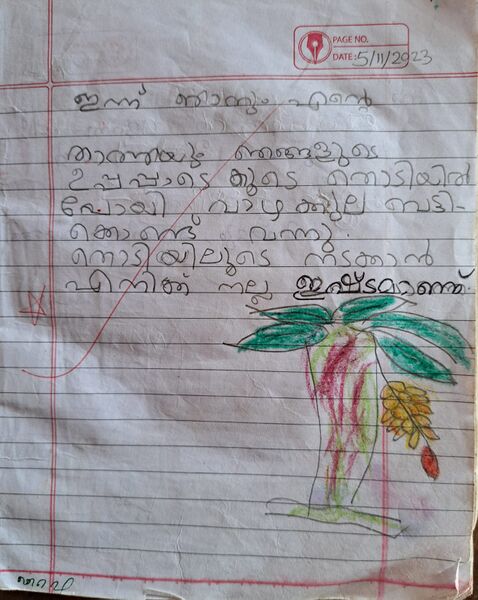 PAGE NO.
DATE: 5/11/2023
ഇന്ന് ഞാനും എന്റെ
താത്തയും ഞങ്ങളുടെ
ഉപ്പപ്പാടെ കൂടെ തൊടിയിൽ
പോയി വാഴ കുല വെട്ടി-
കൊണ്ട് വന്നു.
തൊടിയിലൂടെ നടക്കാൻ
എനിക്ക് നല്ല ഇഷ്ടമാണ്.